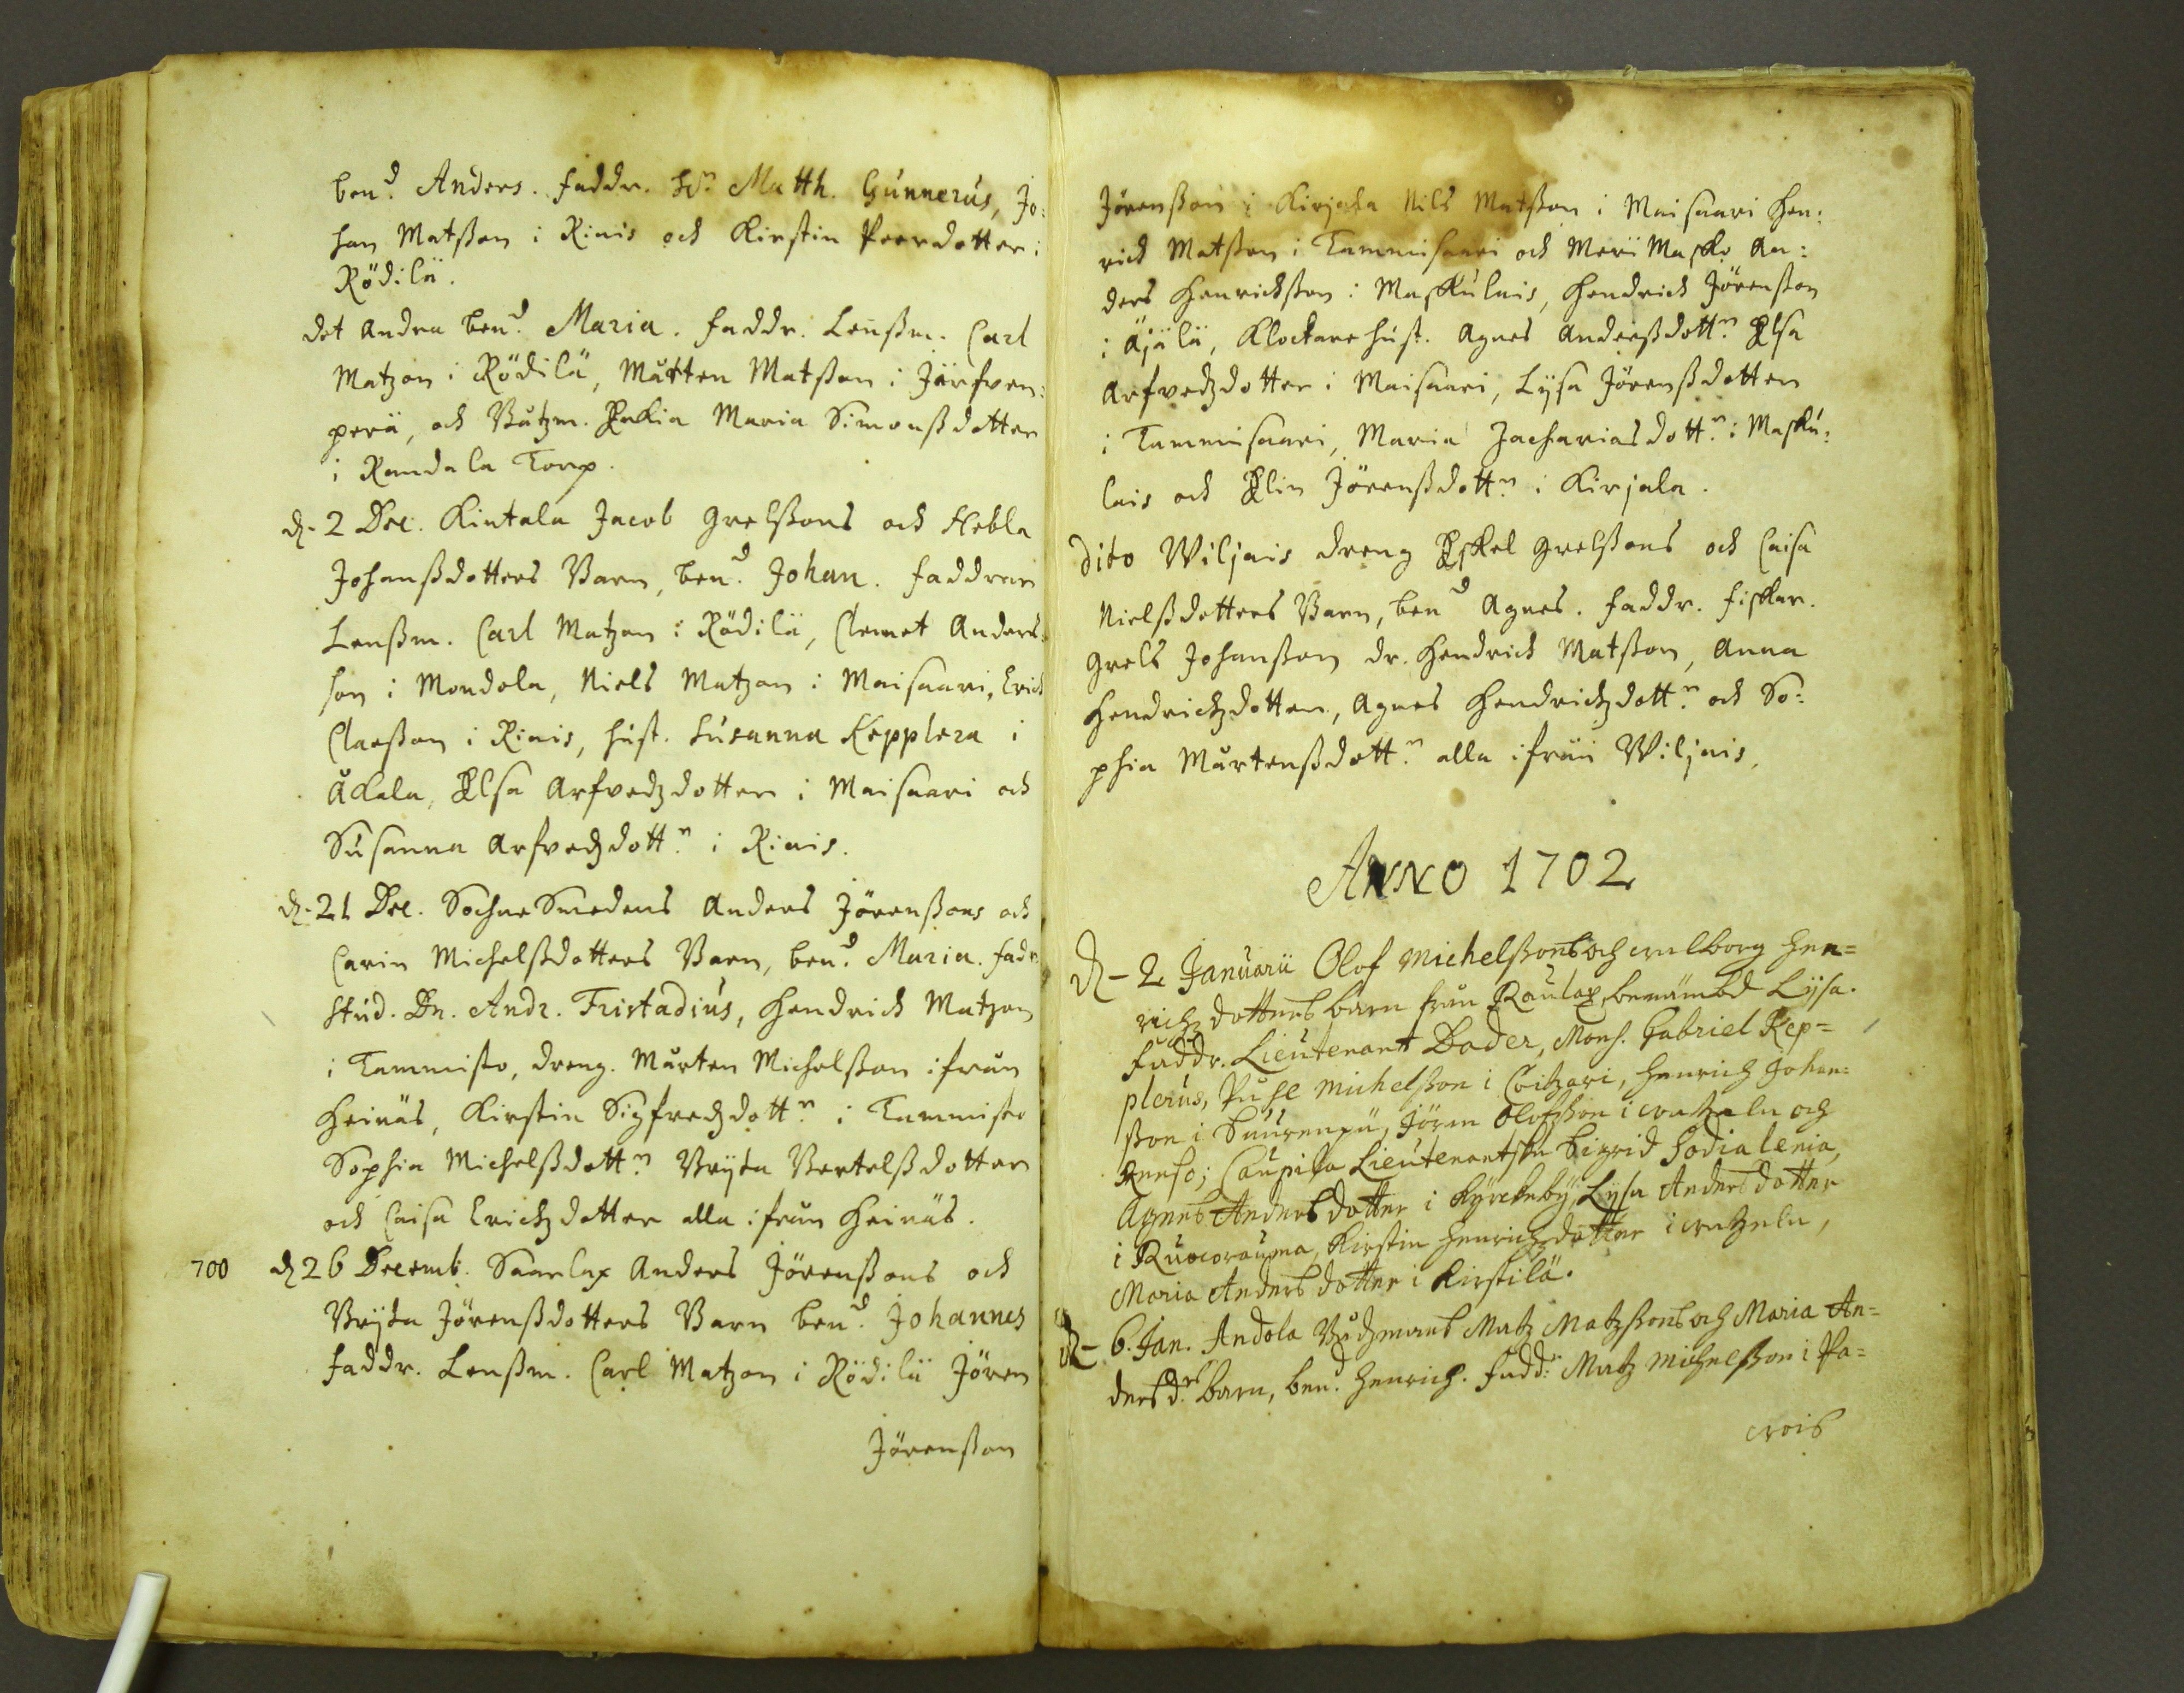 bend. Anders. faddr. Hr. Matth. Gunnerus, Jo:
han Matßon i Kiuis och Kirstin Peerdotter i
Rödilä.
det andra bend. Maria. faddr. Lenßm. Carl
Matzon i Rödilä, Mårten Matßon i Järfven:
perä, och Båtzm. Maria Simonßdotter
i Randala Torp.
d. 2 Dec. Kintala Jacob Grelßons och Hebla
Johanßdotters Barn, bend. Johan. faddrar
Lenßm. Carl Matzon i Rödilä, Clemet Anders:
son i Mondola, Niels Matzon i Maisaari, Erich
Claeßon i Kiuis, hust. Susanna Kepplera i
Åkala, Elsa Arfvedzdotter i Maisaari och
Susanna Arfvedzdottr. i Kiuis.
d. 21 Dec. Sochne Smedens Anders Jörenßons och
Carin Michelßdotters Barn, bend. Maria. fadr.
Stud. Dn. Andr. Tristadius, Hendrich Matzon
i Tammisto, dreng. Mårten Michelßon ifrån
Heinäs, Kirstin Sigfredzdottr. i Tammisto
Sophia Michelßdottr. Brijta Bertelßdotter
och Caisa Erichzdotter alla ifrån Heinäs.
700 d. 26 Decemb. Saarlax Anders Jörenßons och
Brijta Jörenßdotters Barn bend. Johannes
faddr. Lenßm. Carl Matzon i Rödilä Jören
Jörenßon
Jörenßon i Kirjala Nils Matßon i Maisaari Hen:
rich Matßon i Tammisaari och Meri Masko An:
ders Henrichßon i Maskulais, Hendrich Jörenßon
i Äjälä, Klockare hust. Agnes Anderßdottr. Elsa
Arfvedzdotter i Maisaari, Lijsa Jörenßdotter
i Tammisaari, Maria Zachariasdottr. i Masku:
lais och Elin Jörenßdottr. i Kirjala.
dito Wiljais dreng Eskel Grelßons och Caisa
Nielßdotters Barn, bend Agnes. faddr. fiskar.
Grels Johanßon dr. Hendrich Matßon, Anna
Hendrichzdotter, Agnes Hendrichzdottr. och So:
phia Mårtenßdottr. alla ifrån Wiljais.
ANNO 1702
d. - 2 Januarii Olof Michelßons och Walborg Hen=
richzdotters barn från Raulax benämbd Lijsa.
faddr. Lieutenant Bader, Mons. Gabriel Kep=
plerus, Påhl Michelßon i Coitzari, Henrich Johan=
ßon i Saurenpä, Jören Olofßon i Watzela och
Caupila Lieutenantska Sigrid Sodialenia,
Agnes Andersdotter i Kyrckeby, Lijsa Andersdotter
i Ruocorauma, Kirstin Henrichzdotter i Watzela,
Maria Andersdotter i Kirstilä.
d. - 6. Jan. Andola Båtzmans Matz Matzßons och Maria An=
dersdr. barn, bend. Henrich. fadd: Matz Michelßon i Pa=
wois